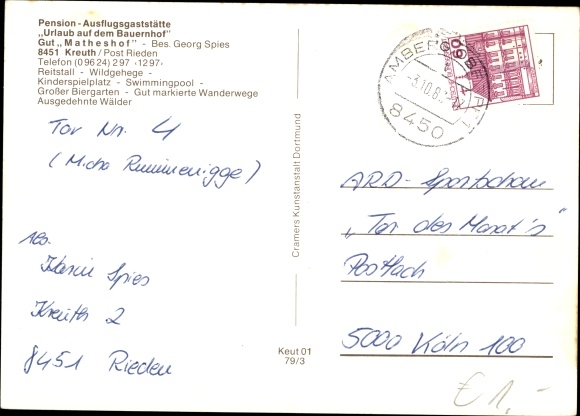 Pension - Ausflugsgaststätte
„Urlaub auf dem Bauernhof"
Gut „Matheshof" - Bes. Georg Spies
8451 Kreuth / Post Rieden
Telefon (0 96 24) 2 97 ‹1297›
Reitstall - Wildgehege -
Kinderspielplatz - Swimmingpool -
Großer Biergarten - Gut markierte Wanderwege
Ausgedehnte Wälder
Tor Nr. 4
(Micha Rummenigge)
Abs.
Spies
Kreuth 2
8451 Rieden
Cramers Kunstanstalt Dortmund
Keut 01
79/3
AMBERG
8450
60
ARD - Sportschau
„Tor des Monat's"
Postfach
5000 Köln 100
€ 1,-